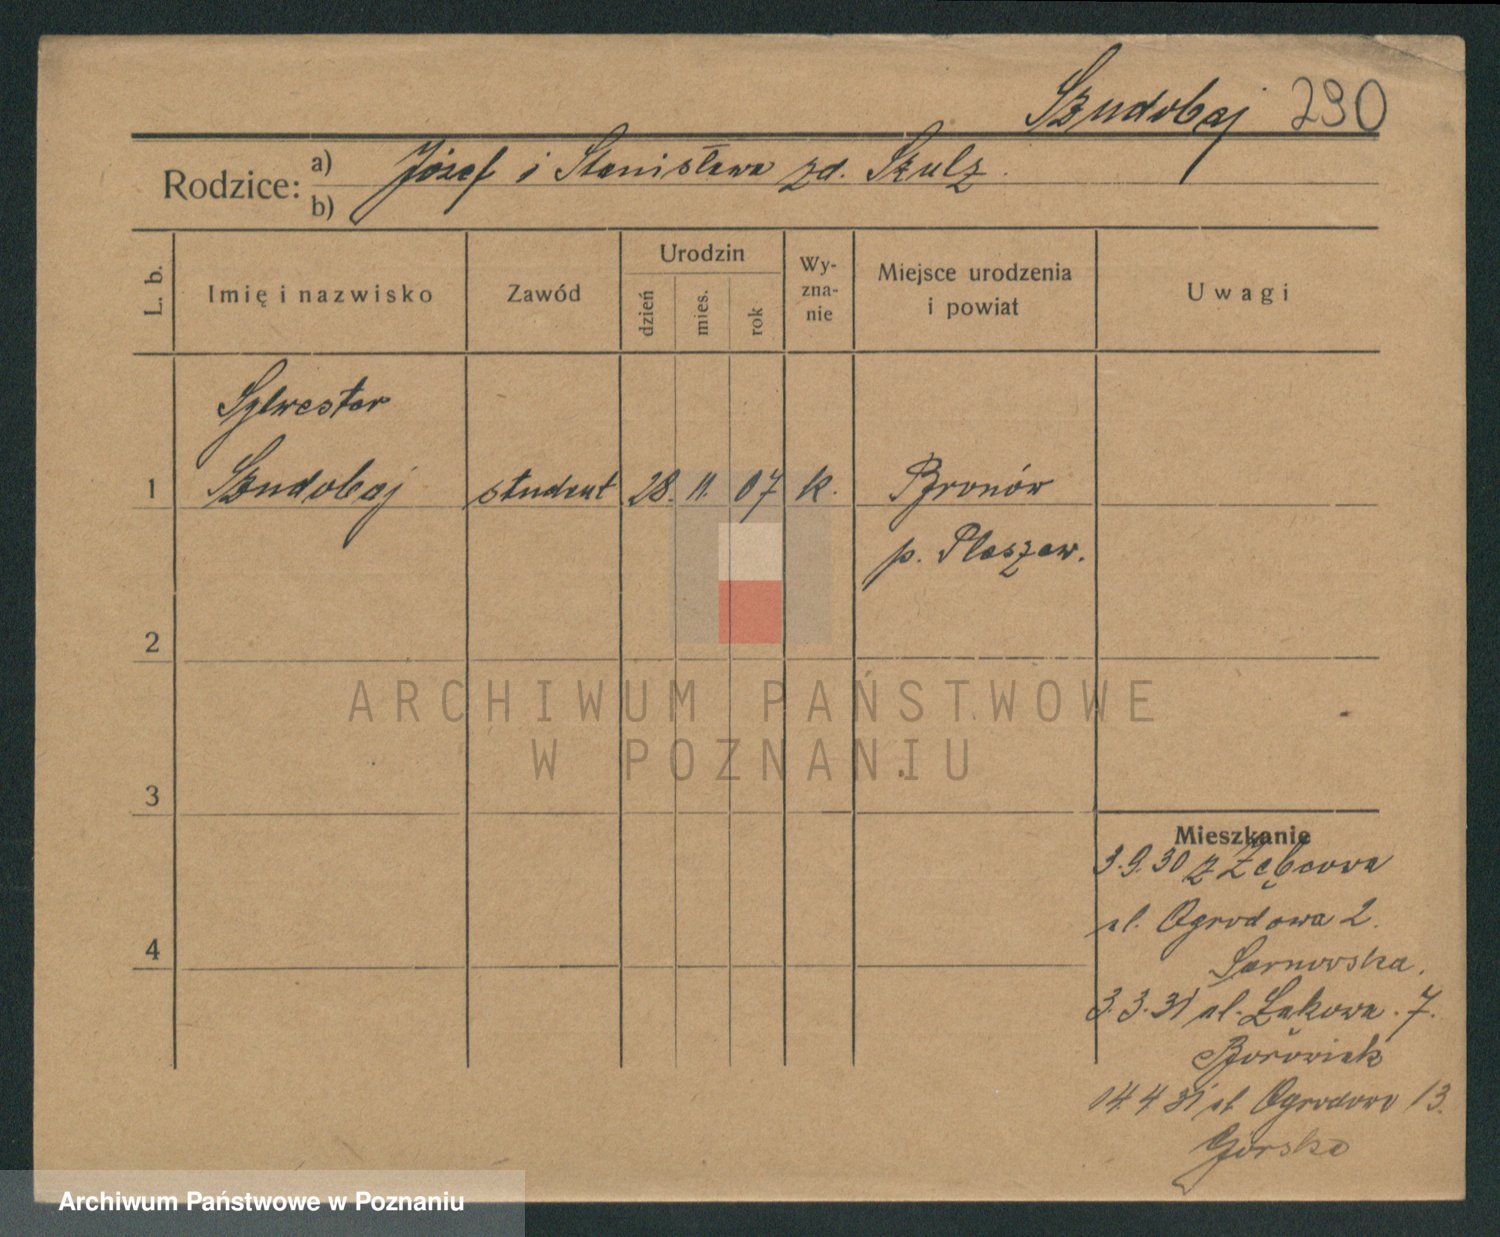 Szudobaj 290
Rodzice: a) Józef i Stanisława zd. Szulz.
b)
L. b. Imię i nazwisko Zawód Urodzin dzień mies. rok Wy-zna-nie Miejsce urodzenia i powiat Uwagi
Sylwester
1 Szudobaj student 28. 11. 07 k. Bronów
p. Pleszew.
2
ARCHIWUM PAŃSTWOWE
W POZNANIU
3
Mieszkanie
3.9.30 z Zębcowa
ul. Ogrodowa 2.
Sarnowska.
4
3.3.31 ul. Łąkowa. 7.
Borowiak
14.4 31 ul Ogrodowa 13.
Górska
Archiwum Państwowe w Poznaniu